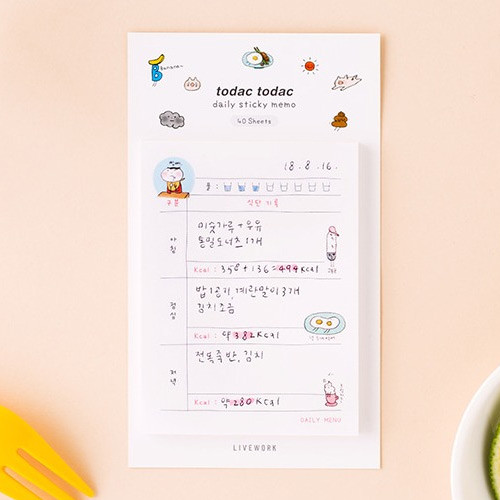 Banana~
todac todac
daily sticky memo
40 Sheets
18. 8. 16.
물 :
구분 식단 기록
아침
미숫가루 + 우유
촌밀도너츠 1개
Kcal : 358 + 136 = 494 Kcal
점심
밥 1공기, 계란말이 3개
김치 조금
Kcal : 약 382 Kcal
저녁
전복죽 반, 김치
Kcal : 약 280 Kcal
DAILY MENU
LIVEWORK